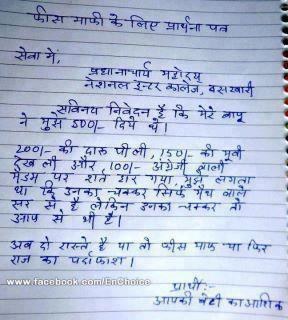 फीस माफी के लिए प्रार्थना पत्र
सेवा में,
प्रधानाचार्य महोदय
नेशनल इन्टर कालेज, बसखारी
सविनय निवेदन है कि मेरे बापू
ने मुझे 500/- दिये थे।
200/- की दारू पी ली, 150/- की मूवी
देख ली और, 100/- अंग्रेजी वाली
मैडम पर शर्त हार गया, मुझे लगता
था कि उनका चक्कर सिर्फ मैथ वाले
सर से है लेकिन उनका चक्कर तो
आप से भी है।
अब दो रास्ते है या तो फीस माफ या फिर
राज का पर्दाफाश।
www.facebook.com/EnChoice
प्रार्थी:-
आपकी बेटी का आशिक